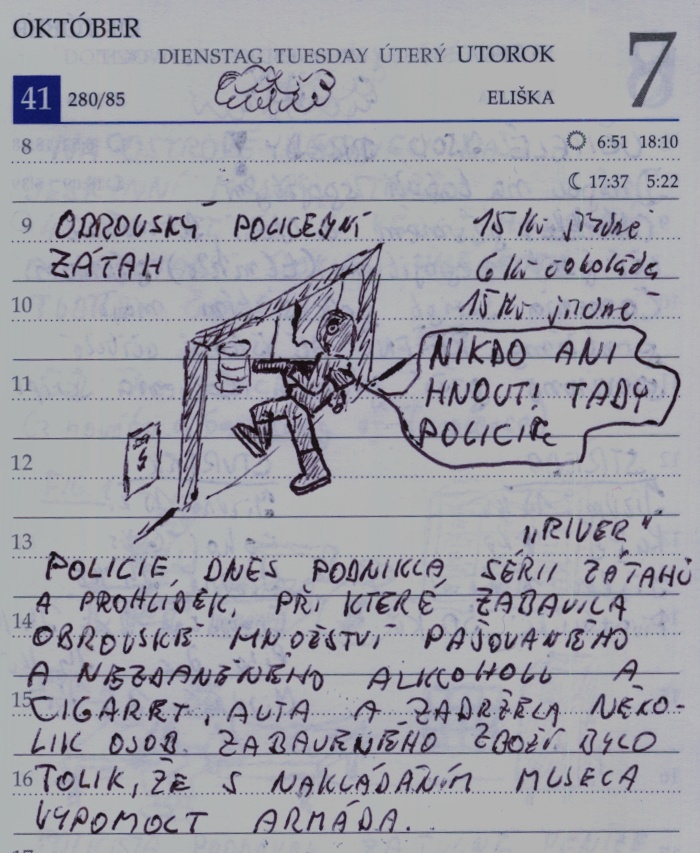 OKTÓBER
DIENSTAG TUESDAY ÚTERÝ UTOROK
7
41 280/85
ELIŠKA
8
6:51 18:10
17:37 5:22
9 OBROVSKÝ POLICEJNÍ
15 Kč jízdné
ZÁTAH
6 Kč čokoláda
10
15 Kč jízdné
NIKDO ANI
11
HNOUT! TADY
POLICIE
12
13
"RIVER"
POLICIE DNES PODNIKLA SÉRII ZÁTAHŮ
A PROHLÍDEK, PŘI KTERÉ ZABAVILA
14
OBROVSKÉ MNOŽSTVÍ PAŠOVANÉHO
A NEZDANĚNÉHO ALKOHOLU A
15
CIGARET, AUTA A ZADRŽELA NĚKO-
LIK OSOB. ZABAVENÉHO ZBOŽÍ BYLO
16 TOLIK, ŽE S NAKLÁDÁNÍM MUSELA
VYPOMOCT ARMÁDA.